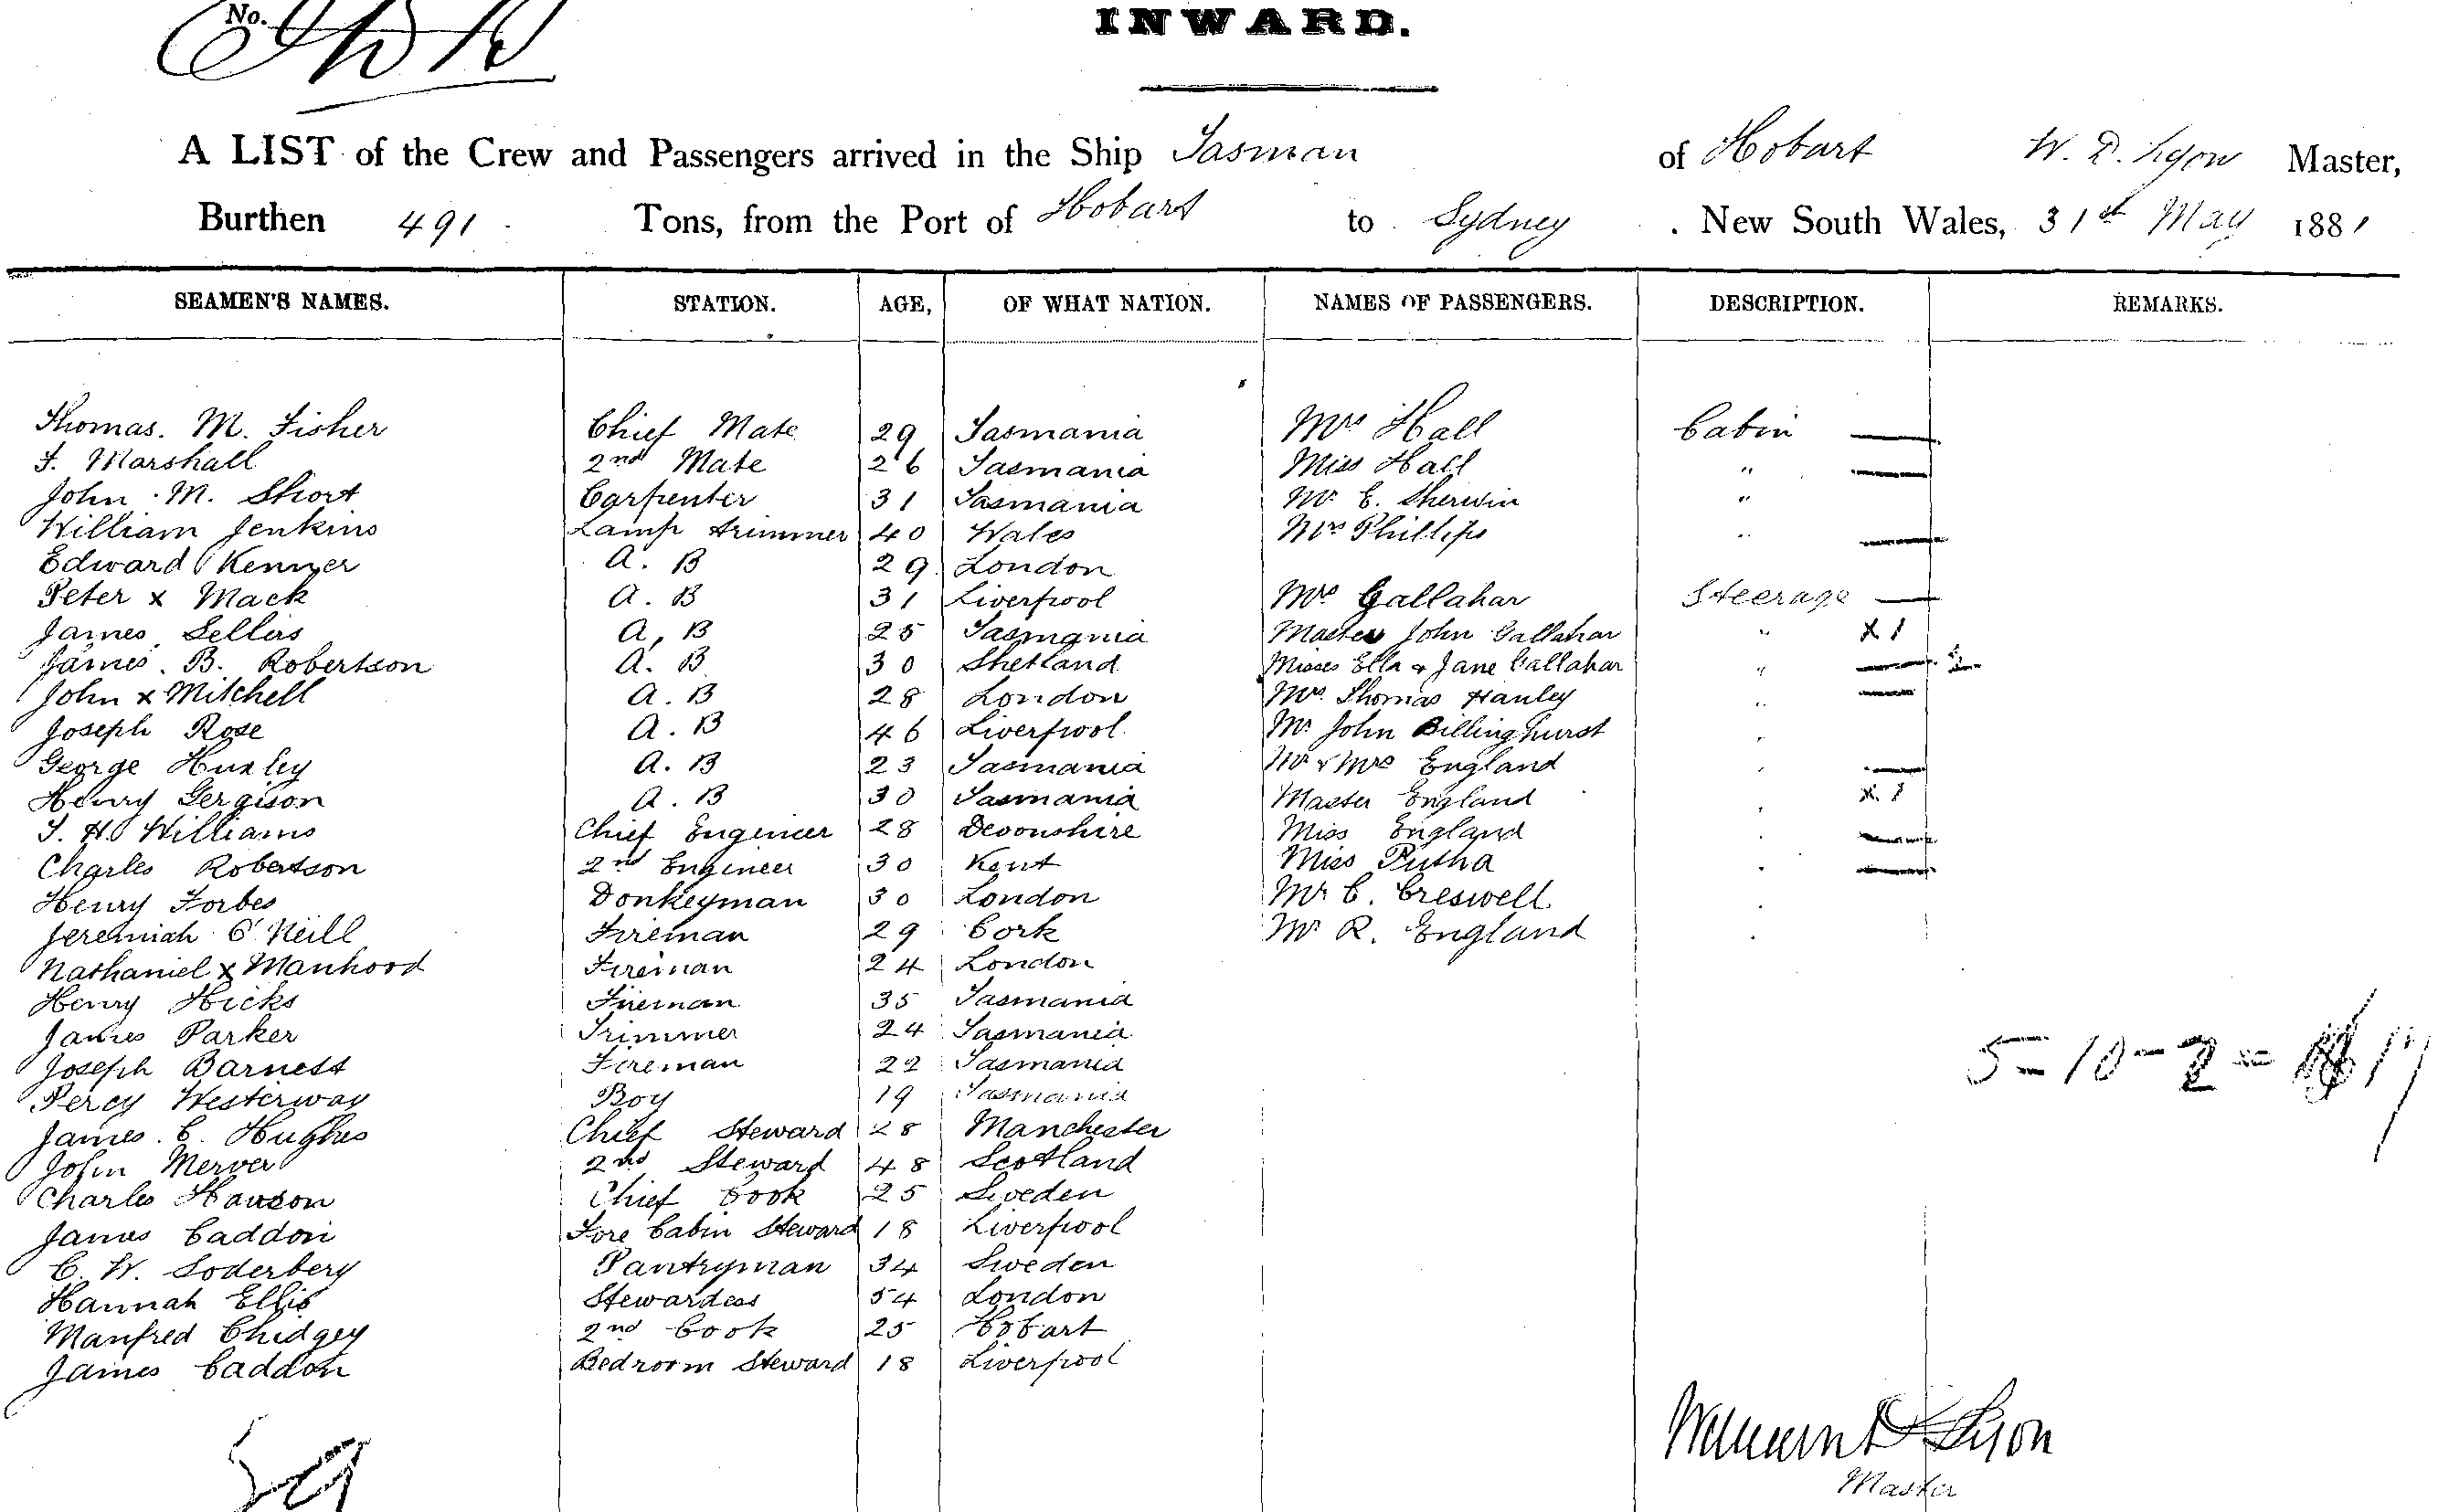 No.
INWARD.
A LIST of the Crew and Passengers arrived in the Ship Tasman of Hobart W. D. Lyon Master,
Burthen 491 Tons, from the Port of Hobart to Sydney . New South Wales, 31st May 1881
SEAMEN'S NAMES. STATION. AGE, OF WHAT NATION. NAMES OF PASSENGERS. DESCRIPTION. REMARKS.
Thomas. M. Fisher Chief Mate 29 Tasmania Mrs Hall Cabin —
F. Marshall 2nd Mate 26 Tasmania Miss Hall " —
John . M. Short Carpenter 31 Tasmania Mr E. Sherwin "
William Jenkins Lamp trimmer 40 Wales Mrs Phillips " —
Edward Kenner A. B 29 London
Peter x Mack A. B 31 Liverpool Mrs Gallahar Steerage —
James Sellers A, B 25 Tasmania Master John Gallahar " X 1
James. B. Robertson A. B 30 Shetland Misses Ella & Jane Callahar " — 2
John x Mitchell A. B 28 London Mrs. Thomas Hanley " —
Joseph Rose A. B 46 Liverpool Mr John Billinghurst "
George Huxley A. B 23 Tasmania Mr & Mrs England " —
Henry Gergison A. B 30 Tasmania Master England " X. 1
T. H. Williams Chief Engineer 28 Devonshire Miss England " —
Charles Robertson 2nd Engineer 30 Kent Miss Putha " —
Henry Forbes Donkeyman 30 London Mr C. Creswell "
Jeremiah O'Neill Fireman 29 Cork Mr R. England "
Nathaniel x Manhood Fireman 24 London
Henry Hicks Fireman 35 Tasmania
James Parker Trimmer 24 Tasmania
Joseph Barnett Fireman 22 Tasmania
5 = 10 - 2 = 17
Percy Westerway Boy 19 Tasmania
James. C. Hughes Chief Steward 28 Manchester
John Merver 2nd Steward 48 Scotland
Charles Hanson Chief Cook 25 Sweden
James Caddon Fore Cabin Steward 18 Liverpool
C. W. Soderberg Pantryman 34 Sweden
Hannah Ellis Stewardess 54 London
Manfred Chidgey 2nd Cook 25 Hobart
James Caddon Bedroom Steward 18 Liverpool
William D Lyon
Master